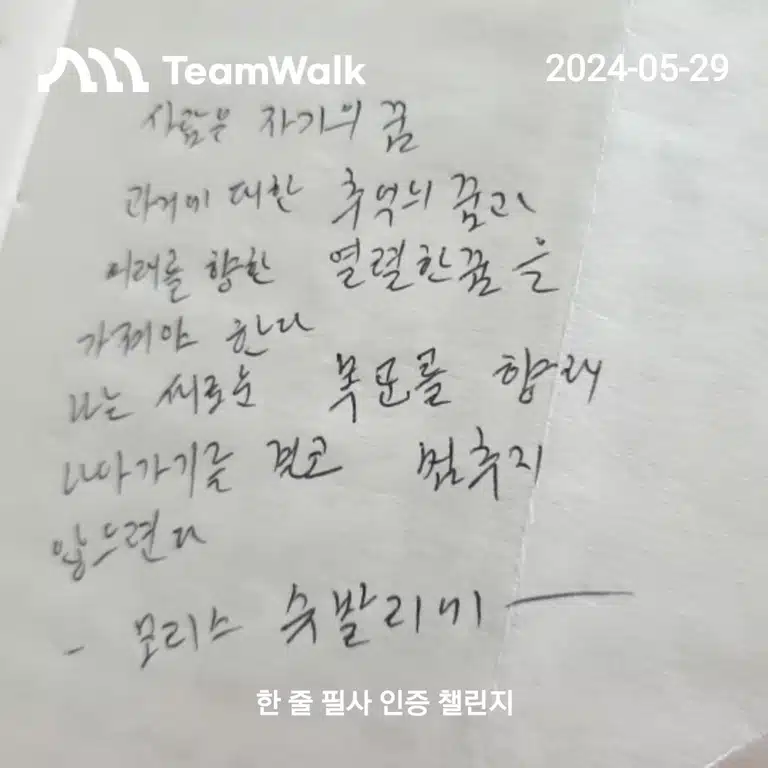 TeamWalk
2024-05-29
사람은 자기의 꿈
과거에 대한 추억의 꿈과
미래를 향한 열렬한 꿈을
가져야 한다
나는 새로운 목표를 향해
나아가기를 결코 멈추지
않으련다
- 모리스 슈발리에 -
한 줄 필사 인증 챌린지